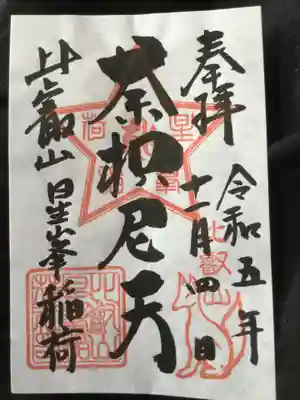 奉拝
令和五年
十一月四日
荼枳尼天
比叡山 星峯稲荷
比叡山